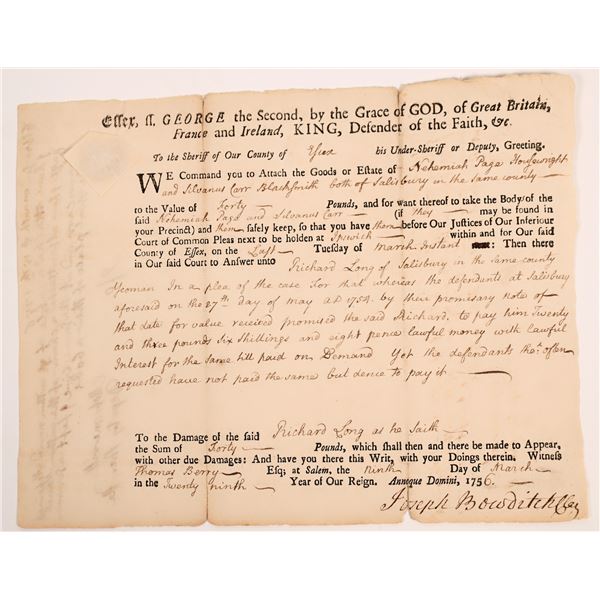 Essex, ss. GEORGE the Second, by the Grace of GOD, of Great Britain,
France and Ireland, KING, Defender of the Faith, &c.
To the Sheriff of Our County of Essex his Under-Sheriff or Deputy, Greeting.
WE Command you to Attach the Goods or Estate of Nehemiah Page Housewright
and Silvanus Carr Blacksmith both of Salisbury in the same county
to the Value of Forty Pounds, and for want thereof to take the Body of the
said Nehemiah Page and Silvanus Carr (if they may be found in
your Precinct) and them safely keep, so that you have them before Our Justices of Our Inferiour
Court of Common Pleas next to be holden at Ipswich within and for Our said
County of Essex, on the Last Tuesday of March Instant : Then there
in Our said Court to Answer unto Richard Long of Salisbury in the same county
Yeoman In a plea of the case For that whereas the defendants at Salisbury
aforesaid on the 27th day of may A.D 1754. by their promisary note of
that date for value received promised the said Richard, to pay him Twenty
and three pounds Six Shillings and eight pence lawful money with lawful
Interest for the same till paid on Demand Yet the defendants tho' often
requested have not paid the same but denie to pay it
To the Damage of the said Richard Long as he saith
the Sum of Forty Pounds, which shall then and there be made to Appear,
with other due Damages: And have you there this Writ, with your Doings therein. Witness
Thomas Berry Esq; at Salem, the Ninth Day of March
in the Twenty ninth Year of Our Reign. Annoque Domini, 1756.
Joseph Bowditch Cler